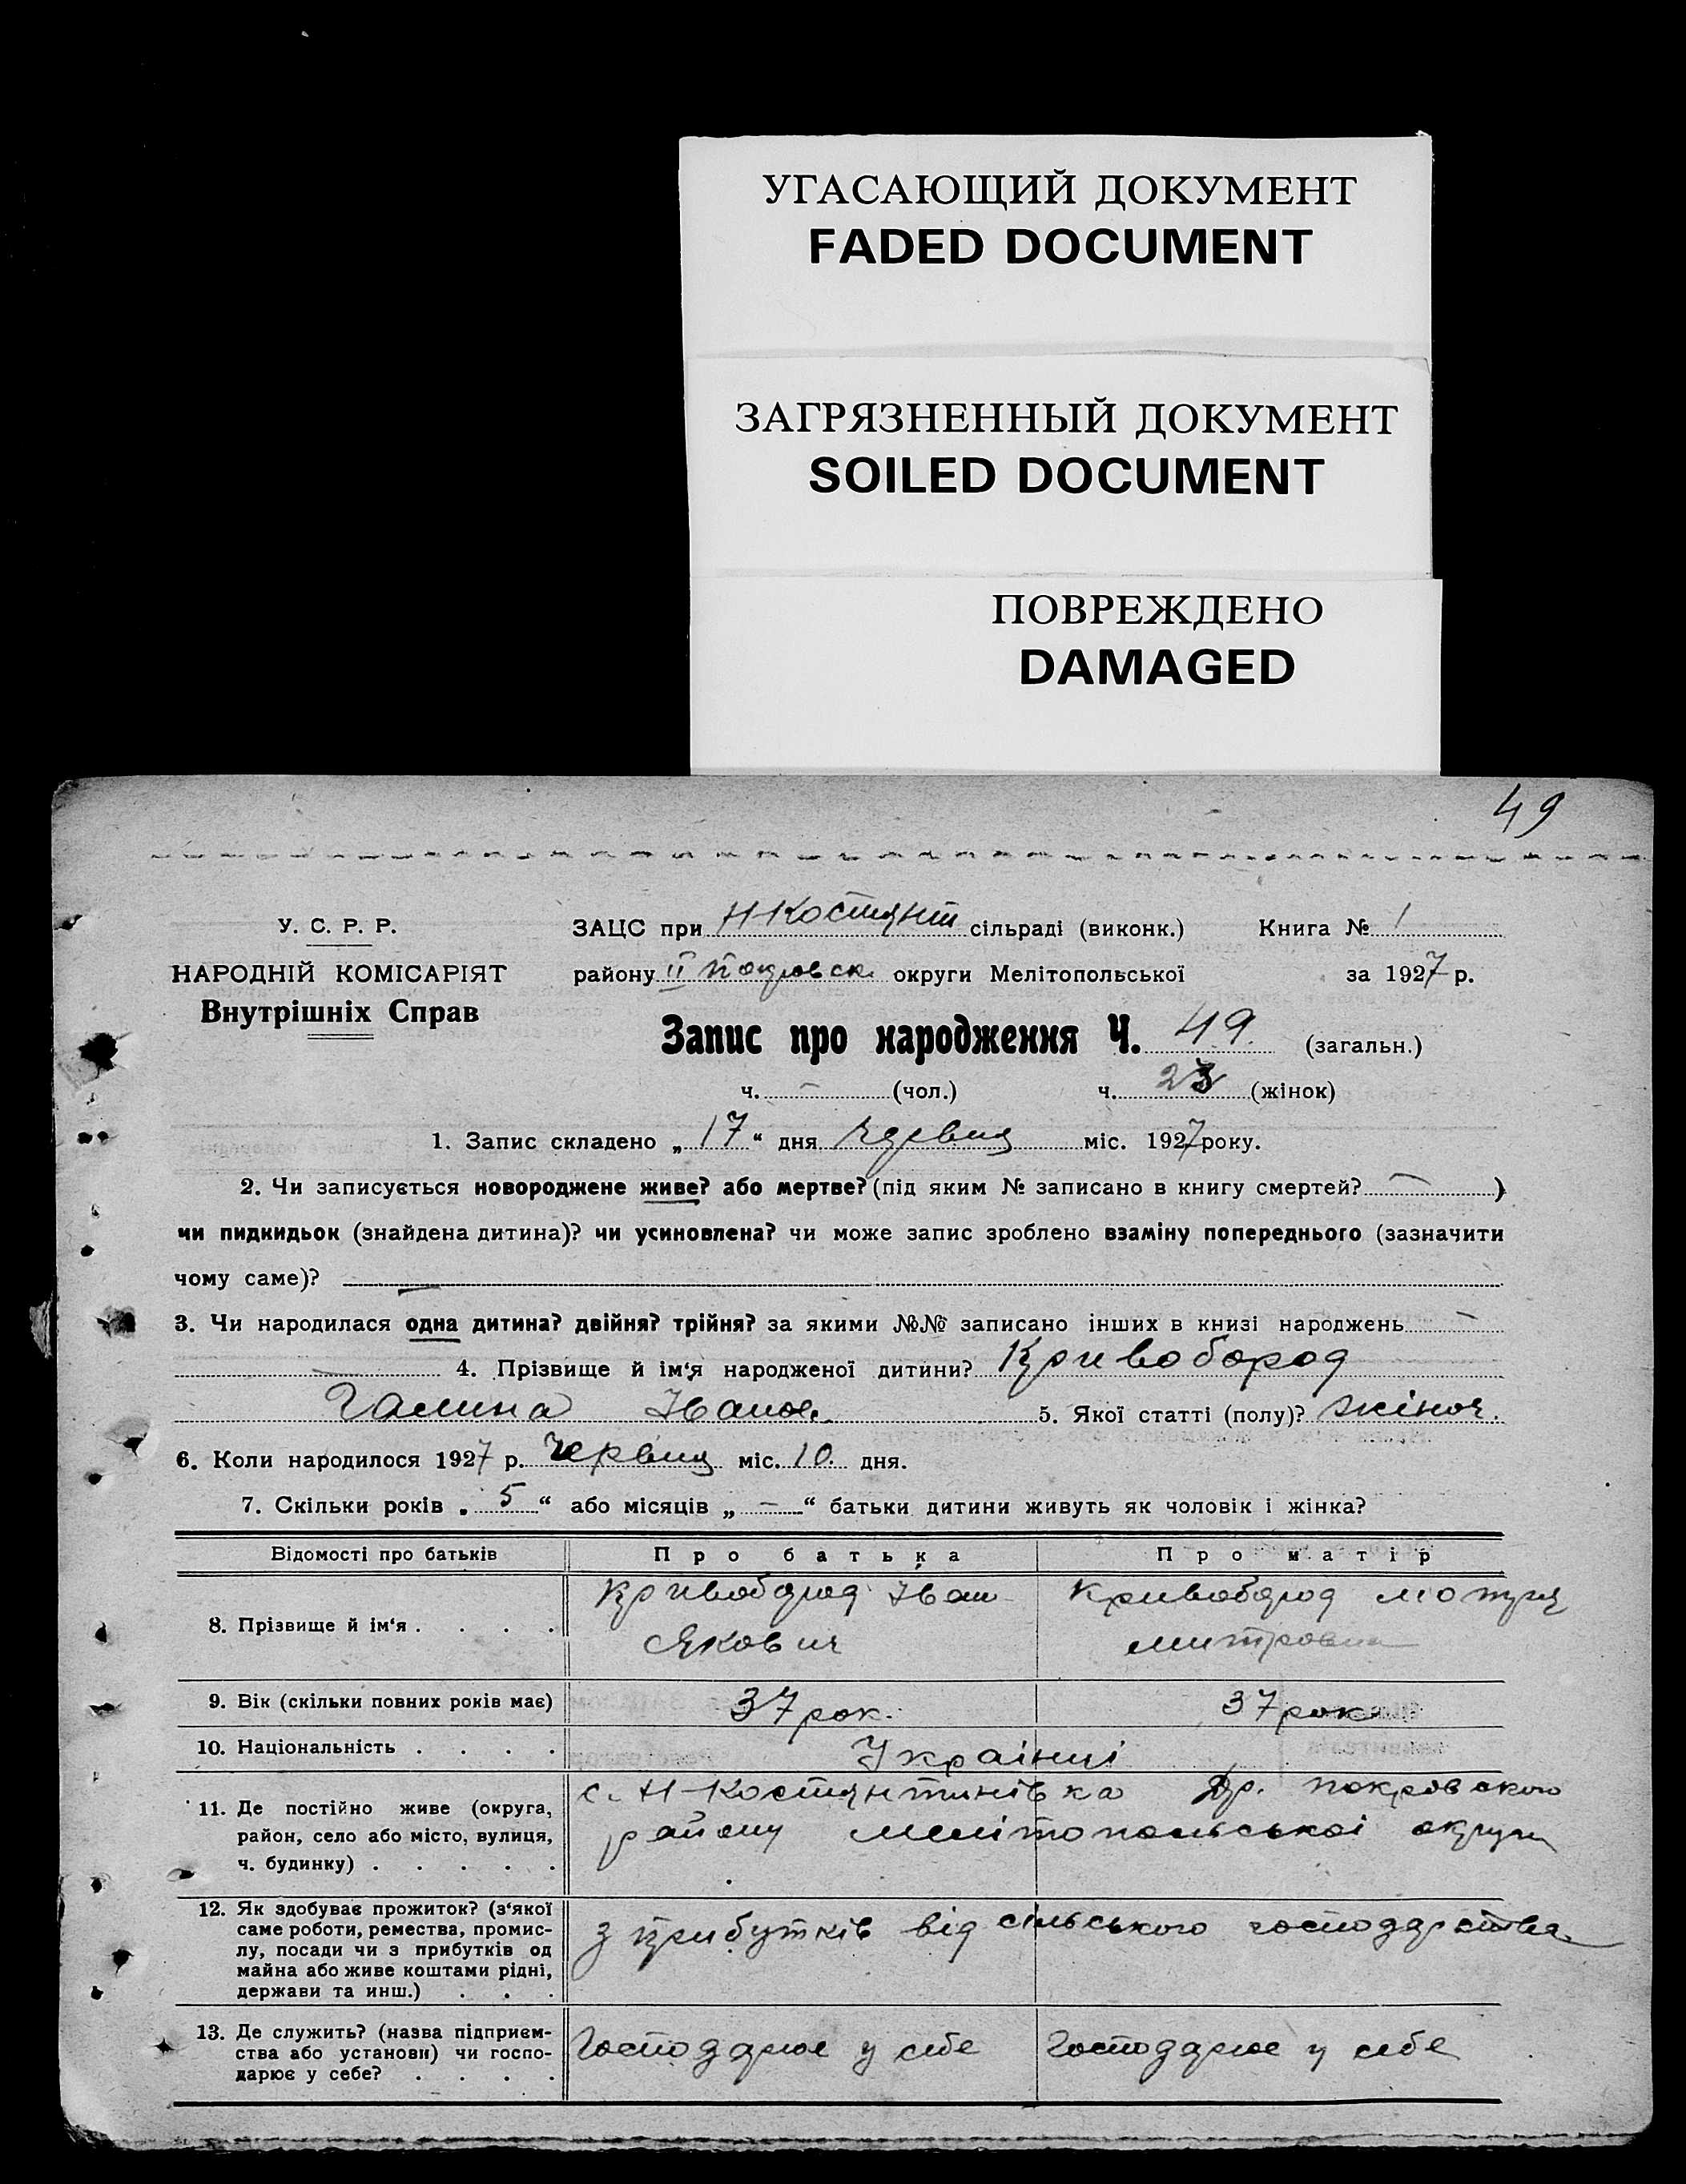 УГАСАЮЩИЙ ДОКУМЕНТ
FADED DOCUMENT
ЗАГРЯЗНЕННЫЙ ДОКУМЕНТ
SOILED DOCUMENT
ПОВРЕЖДЕНО
DAMAGED
49
У. С. Р. Р.
НАРОДНІЙ КОМІСАРІЯТ
Внутрішніх Справ
ЗАЦС при Н-Костянт сільраді (виконк.) Книга № 1
району II Покровск. округи Мелітопольської за 1927 р.
Запис про народження Ч. 49. (загальн.)
ч. – (чол.) ч. 23 (жінок)
1. Запис складено „ 17 “ дня червня міс. 1927 року.
2. Чи записується новороджене живе? або мертве? (під яким № записано в книгу смертей? — )
чи пидкидьок (знайдена дитина)? чи усиновлена? чи може запис зроблено взаміну попереднього (зазначити
чому саме)? —
3. Чи народилася одна дитина? двійня? трійня? за якими №№ записано інших в книзі народжень —
— 4. Прізвище й ім‘я народженої дитини? Кривобород
Галина Іванов. 5. Якої статті (полу)? жіноч.
6. Коли народилося 1927 р. Червня міс. 10. дня.
7. Скільки років „ 5 “ або місяців „ – “ батьки дитини живуть як чоловік і жінка?
Відомості про батьків Про батька Про матір
8. Прізвище й ім‘я . . . . Кривобород Іван Якович Кривобород Мотря Митровна
9. Вік (скільки повних років має) 37 рок. 37 рок.
10. Національність . . . . Українці
11. Де постійно живе (округа, район, село або місто, вулиця, ч. будинку) . . . . . с. Н-Костянтинівка Др. Покровского району Мелітопольськоі округи
12. Як здобуває прожиток? (з‘якої саме роботи, ремества, промислу, посади чи з прибутків од майна або живе коштами рідні, держави та инш.) . . . з прибутків від сільського господарства
13. Де служить? (назва підприємства або установи) чи господарює у себе? . . . . Господарює у себе Господарює у себе